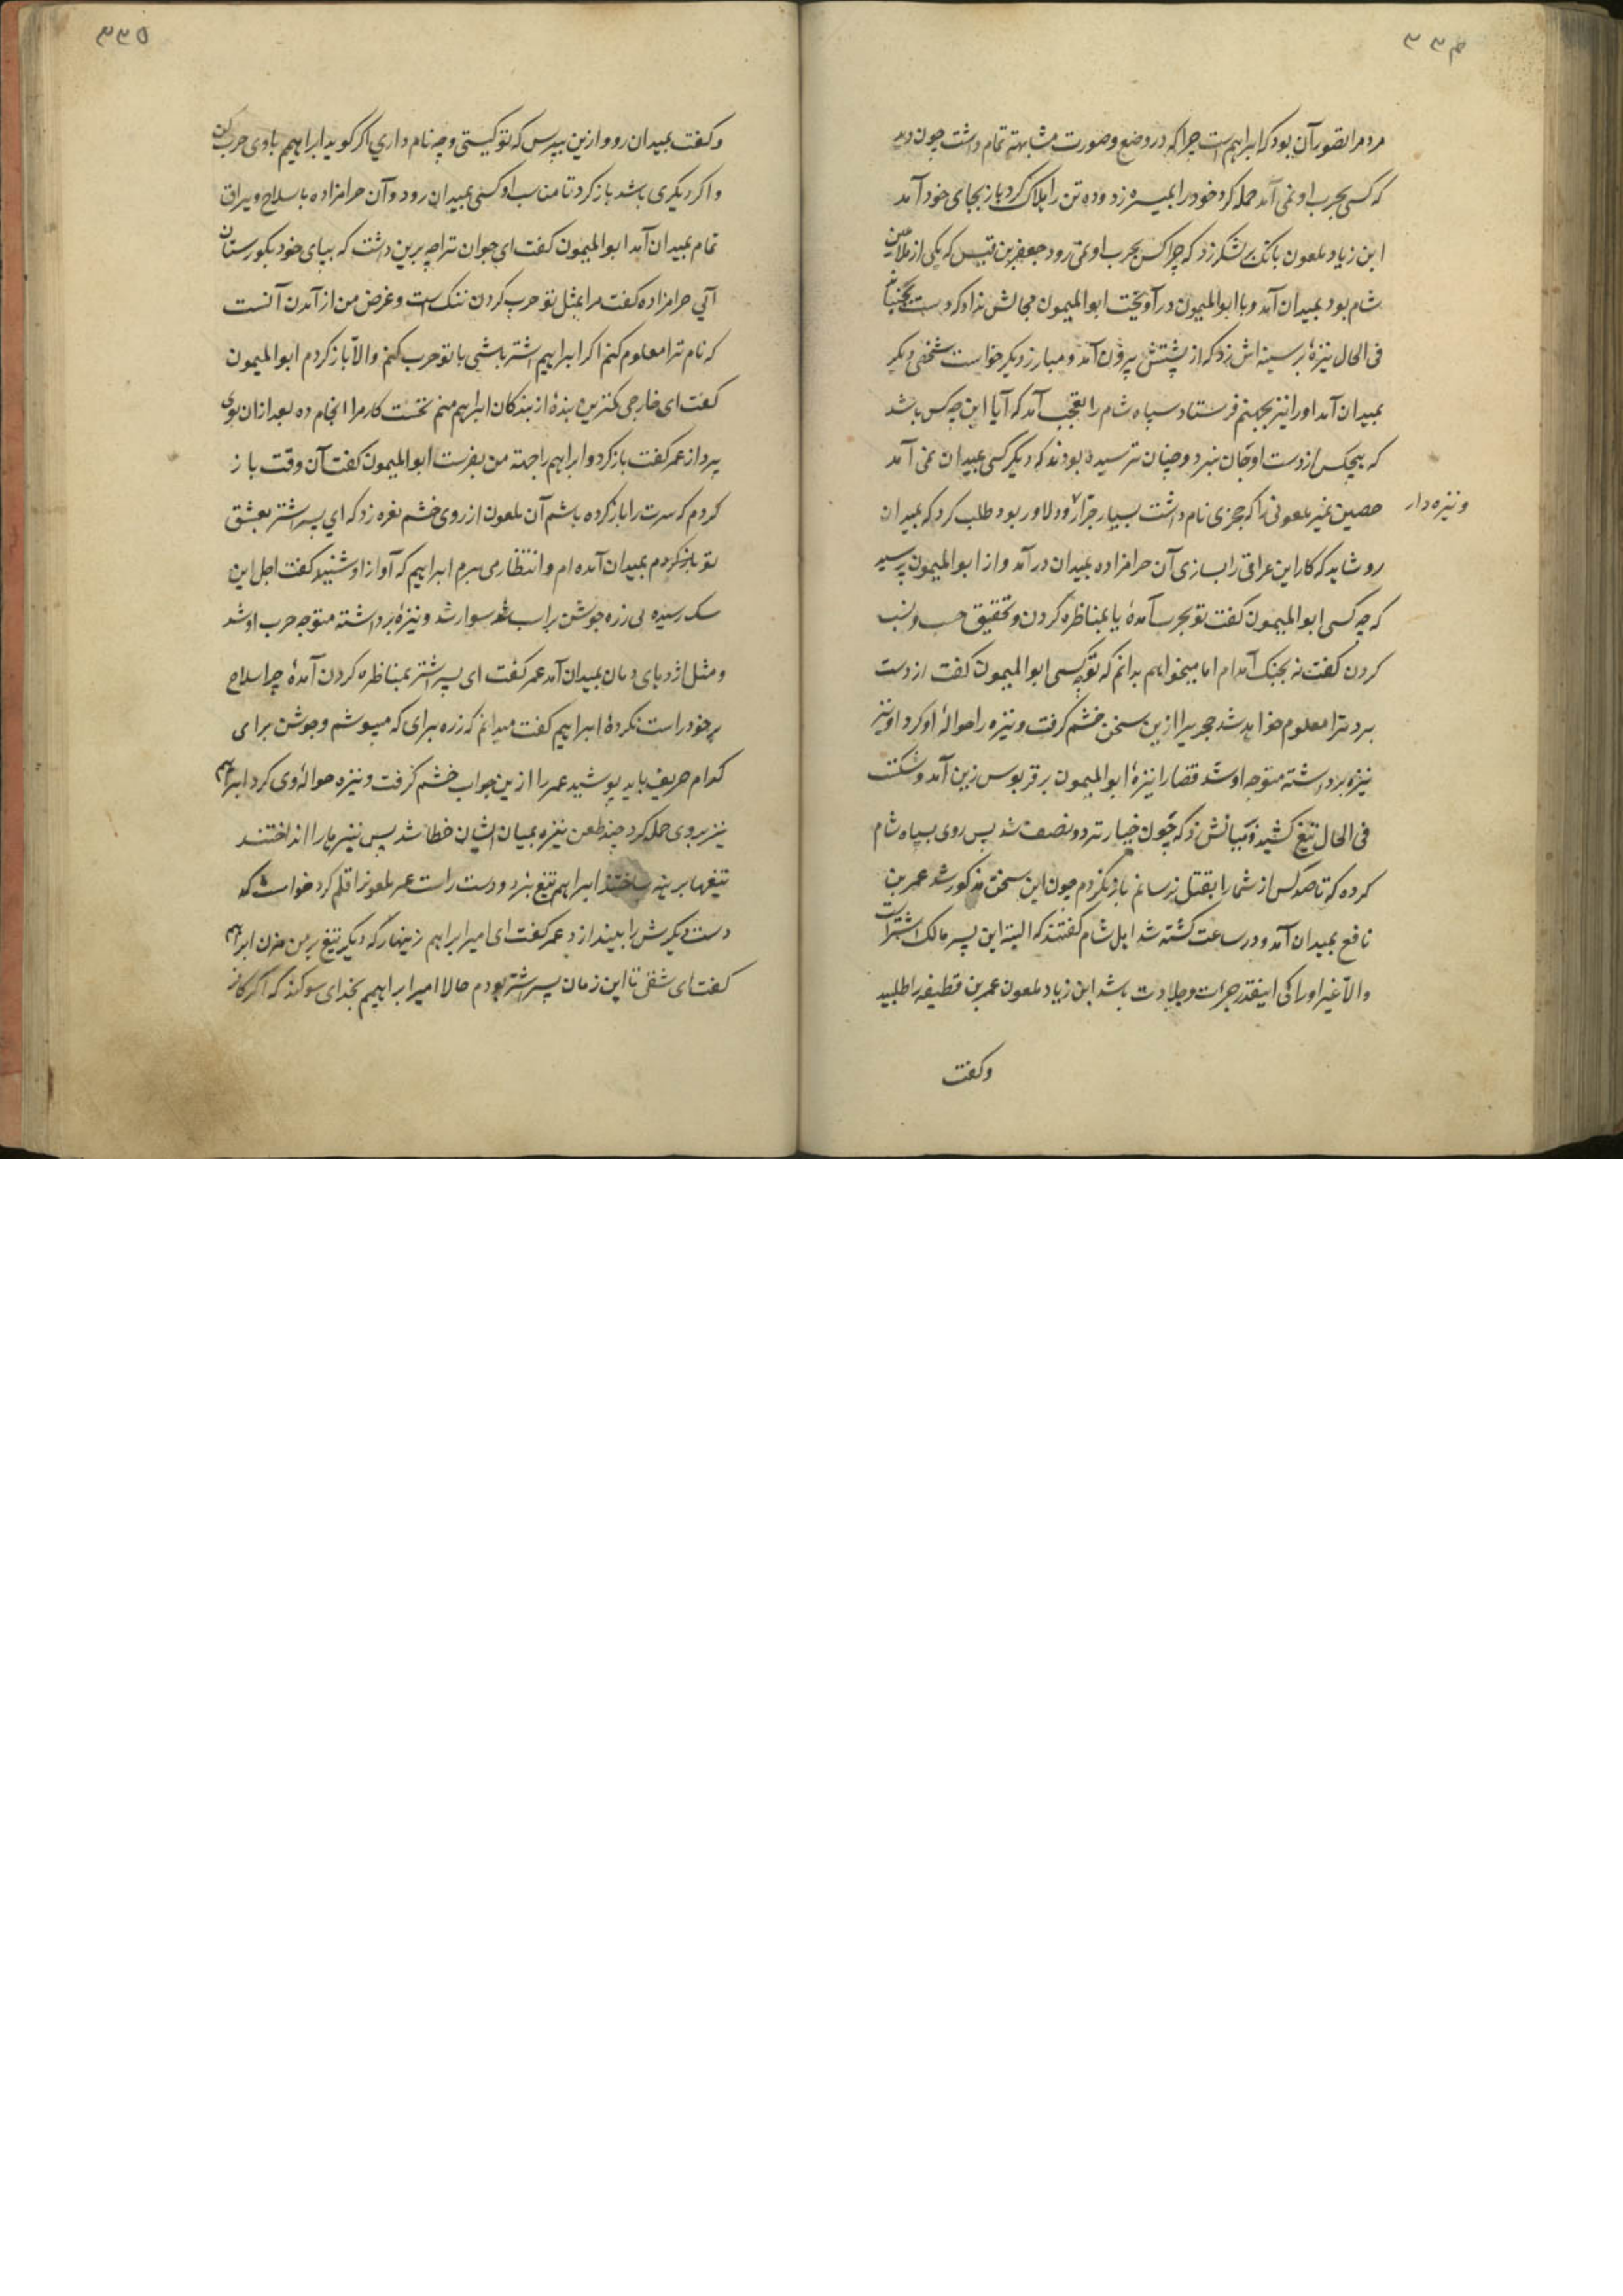 ۳۳۴
مردم را تصور آن بود که ابراهیم است چرا که در وضع و صورت مشابهت تمام داشت چون دید
که کسی بحرب او نمی آمد حمله کرد خود را بمیسره زد و ده تن را هلاک کرد باز بجای خود آمد
ابن زیاد ملعون بانک بر لشکر زد که چرا کس بحرب او نمی رود جعفر بن قیس که یکی از ملاعین
شام بود بمیدان آمد و با ابوالمیمون در آویخت ابوالمیمون مجالش نداد که دست بجنباند
فی الحال نیزهٔ بر سینه اش زد که از پشتش بیرون آمد و مبارز دیگر خواست شخصی دیگر
بمیدان آمد او را نیز بجهنم فرستاد سپاه شام را تعجب آمد که آیا این چه کس باشد
که هیچکس از دست او جان نبرد و چنان ترسیده بودند که دیگر کسی بمیدان نمی آمد
حصین نمیر ملعونی را که نام داشت بسیار جرار و دلاور بود طلب کرد که بمیدان
و نیزه دار
رو شاید که کار این عراقی را بسازی آن حرامزاده بمیدان درآمد و از ابوالمیمون پرسید
که چه کسی ابوالمیمون گفت تو بحرب آمدهٔ یا بمناظره کردن و تحقیق حسب و نسب
کردن گفت نه بجنک آمدم اما میخواهم بدانم که تو چه کسی ابوالمیمون گفت از دست
برد مترا معلوم خواهد شد را ازین سخن خشم گرفت و نیزه را حوالهٔ او کرد او نیز
نیزه برداشته متوجه او شد قضا را نیزهٔ ابوالمیمون بر قربوس زین آمد و شکست
فی الحال تیغ کشید و بمیانش زد که چون خیار تر دو نصف شد پس روی بسپاه شام
کرده که تا صد کس از شما را بقتل نرسانم باز نگردم چون این سخن مذکور شد عمر بن
نافع بمیدان آمد و در ساعت کشته شد اهل شام گفتند که البته این پسر مالک اشتر است
والا غیر او را کی اینقدر جرات و جلادت باشد ابن زیاد ملعون عمر بن قطیفه را طلبید
وگفت
۳۳۵
وگفت بمیدان رو و ازین بپرس که تو کیستی و چه نام داری اگر گوید ابراهیم باوی حرب کن
و اگر دیگری باشد باز گرد تا مناسب او کسی بمیدان رود و آن حرامزاده با سلاح و یراق
تمام بمیدان آمد ابوالمیمون گفت ای جوان ترا چه برین داشت که بپای خود بگورستان
آئی حرامزاده گفت مرا بمثل تو حرب کردن ننک است و غرض من از آمدن آنست
که نام ترا معلوم کنم اگر ابراهیم اشتر باشی با تو حرب کنم والا باز گردم ابوالمیمون
گفت ای خارجی کمترین بندهٔ از بندگان ابراهیم منم نخست کار مرا انجام ده بعد ازان بوی
پرداز عمر گفت باز گرد و ابراهیم را جهة من بفرست ابوالمیمون گفت آن وقت باز
گردم که سرت را باز کرده باشم آن ملعون از روی خشم نعره زد که ای پسر اشتر بعشق
تو بمیدان آمده ام و انتظار می برم ابراهیم که آواز او شنید گفت اجل این
سک رسیده بی زره جوشن بر اسب سوار شد و نیزهٔ برداشته متوجه حرب او شد
و مثل اژدهای دمان بمیدان آمد عمر گفت ای پسر اشتر بمناظره کردن آمدهٔ چرا سلاح
بر خود راست نکردهٔ ابراهیم گفت میدانم که زره برای که میپوشم و جوشن برای
کدام حریف باید پوشید عمر را ازین جواب خشم گرفت و نیزه حوالهٔ وی کرد ابراهیم
نیز بروی حمله کرد چند طعن نیزه بمیان ایشان خطا شد پس نیزها را انداختند
تیغها برهنه ساختند ابراهیم تیغ بزد و دست راست عمر ملعون را قلم کرد خواست که
دست دیگرش را بیندازد عمر گفت ای امیر ابراهیم زینهار که دیگر تیغ بر من مزن ابراهیم
گفت ای شقی تا این زمان پسر اشتر بودم حالا امیر ابراهیمم بخدای سوکند که اگر